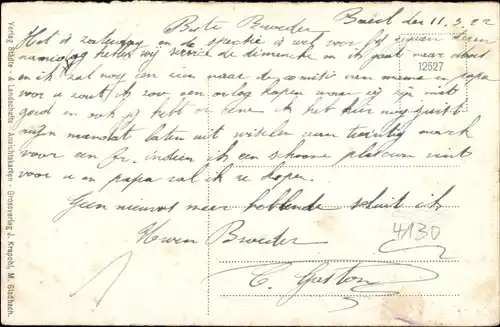 Beste Broeder Baesl den 11.3.22
Het is zaterdag en de inspectie is wel voor bij
namiddag hebben wij service de dimanche en ik gaat naar
en ik zal nog een uur naar de comitié van
voor u zout ik zoo een orlog kopen waar zij zijn niet
goed en ook gij hebt er eene ik het hier nog juist
mijn mandat laten uit wiselen aan twintig mark
voor een fr. indien ik een schoone plateum vint
voor u en papa zal ik ze kopen.
Geen nieuws meer hebbende sluit ik
Uwen Broeder
C. Gaston
12527
4130
Verlag Städte- & Landschafts-Ansichtskarten - Grossverlag J. Krapohl, M. Gladbach.